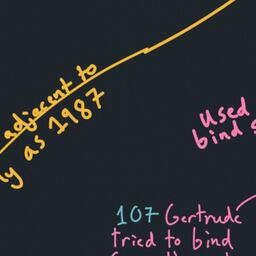 adjacent to
as 1987
Used
bind
107 Gertrude
tried to bind